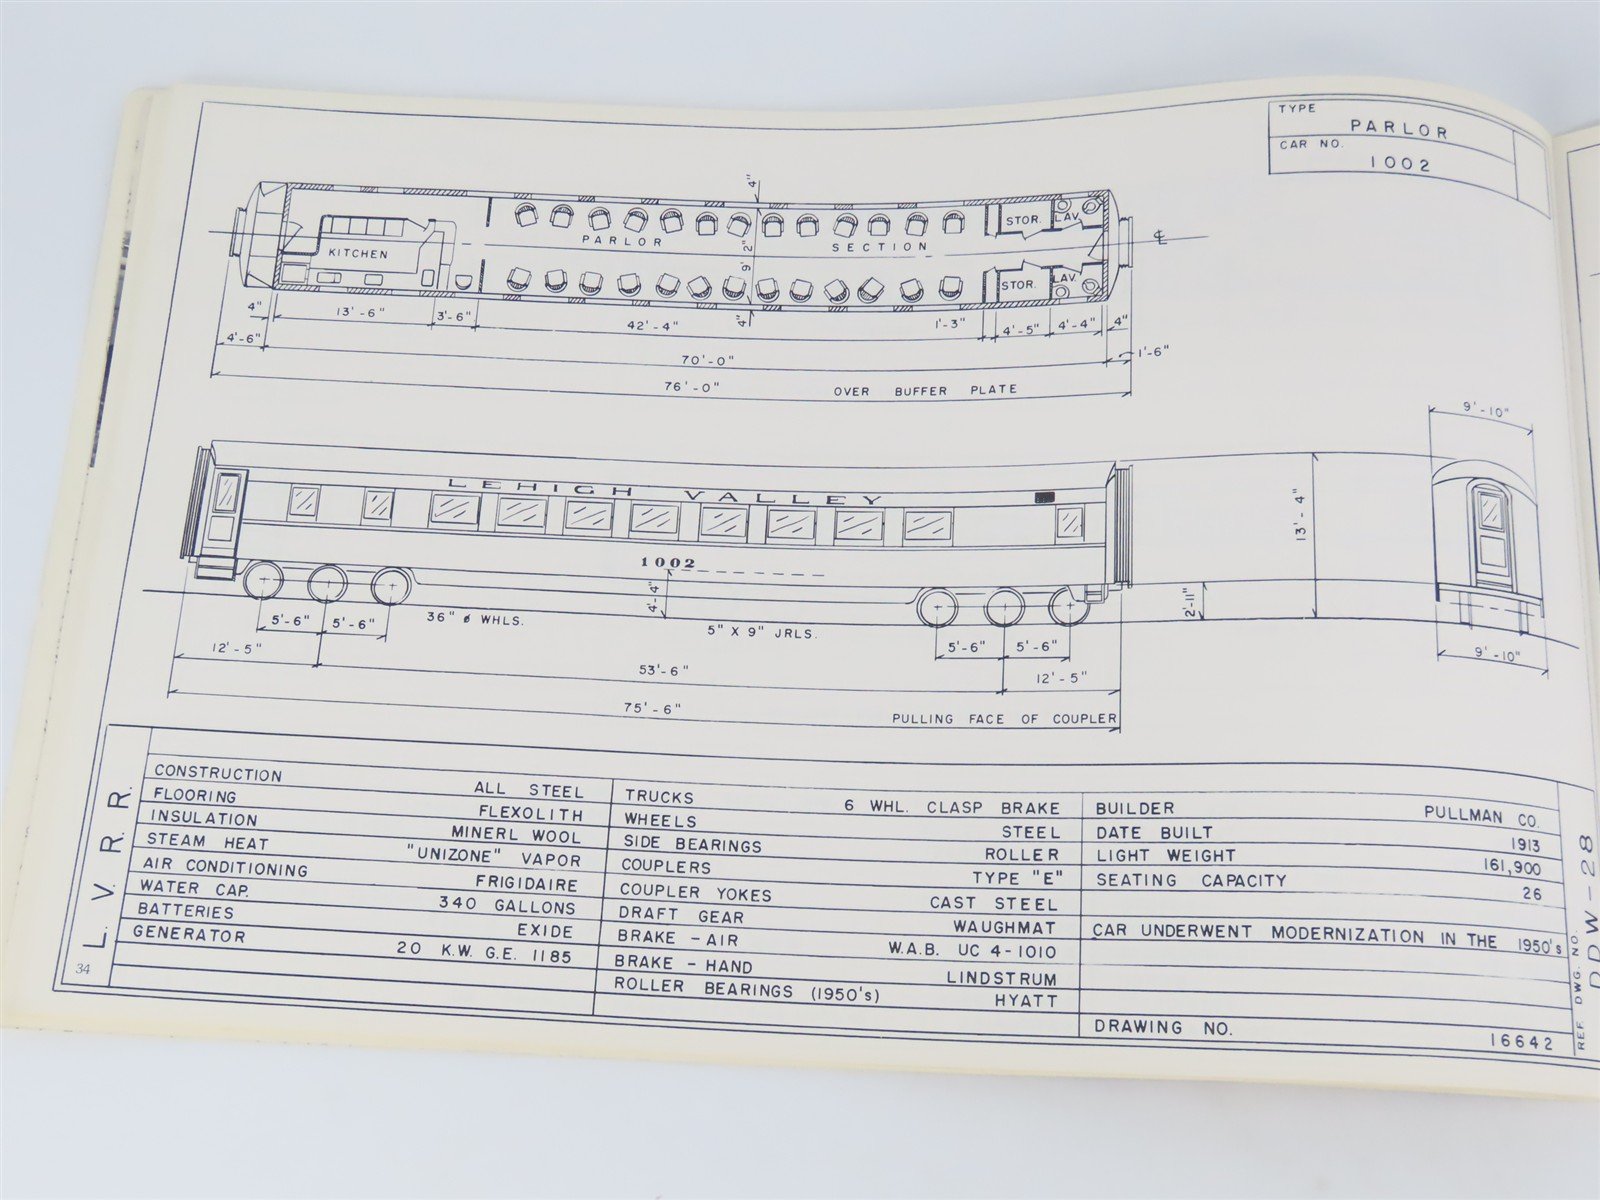 TYPE
PARLOR
CAR NO.
1002
4"
STOR. LAV.
PARLOR SECTION
KITCHEN
9' 2"
℄
STOR. LAV.
4"
4" 13'-6" 3'-6" 42'-4" 1'-3" 4'-5" 4'-4" 4"
4'-6" 70'-0" 1'-6"
76'-0" OVER BUFFER PLATE
9'-10"
LEHIGH VALLEY
13'-4"
1002
4'-4"
2'-11"
36" ø WHLS.
5" X 9" JRLS.
5'-6" 5'-6" 5'-6" 5'-6"
9'-10"
12'-5" 53'-6" 12'-5"
75'-6" PULLING FACE OF COUPLER
L. V. R. R.
34
CONSTRUCTION ALL STEEL
FLOORING FLEXOLITH
INSULATION MINERL WOOL
STEAM HEAT "UNIZONE" VAPOR
AIR CONDITIONING FRIGIDAIRE
WATER CAP. 340 GALLONS
BATTERIES EXIDE
GENERATOR 20 K.W. G.E. 1185
TRUCKS 6 WHL. CLASP BRAKE
WHEELS STEEL
SIDE BEARINGS ROLLER
COUPLERS TYPE "E"
COUPLER YOKES CAST STEEL
DRAFT GEAR WAUGHMAT
BRAKE - AIR W.A.B. UC 4-1010
BRAKE - HAND LINDSTRUM
ROLLER BEARINGS (1950's) HYATT
BUILDER PULLMAN CO.
DATE BUILT 1913
LIGHT WEIGHT 161,900
SEATING CAPACITY 26
CAR UNDERWENT MODERNIZATION IN THE 1950's
DRAWING NO. 16642
REF. DWG. NO.
DDW-28